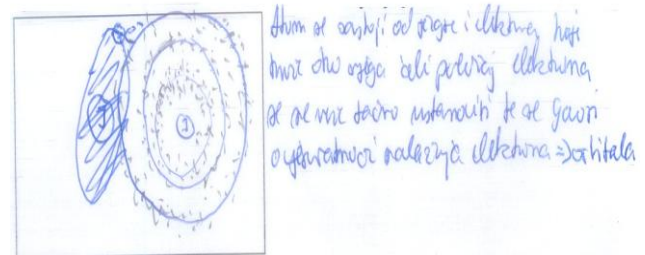 Atom se sastoji od jezgre i elektrona koje
kruže oko njega ali položaj elektrona
se ne može točno ustanoviti te se govori
o vjerovatnosti nalazenja elektrona => orbitala
J